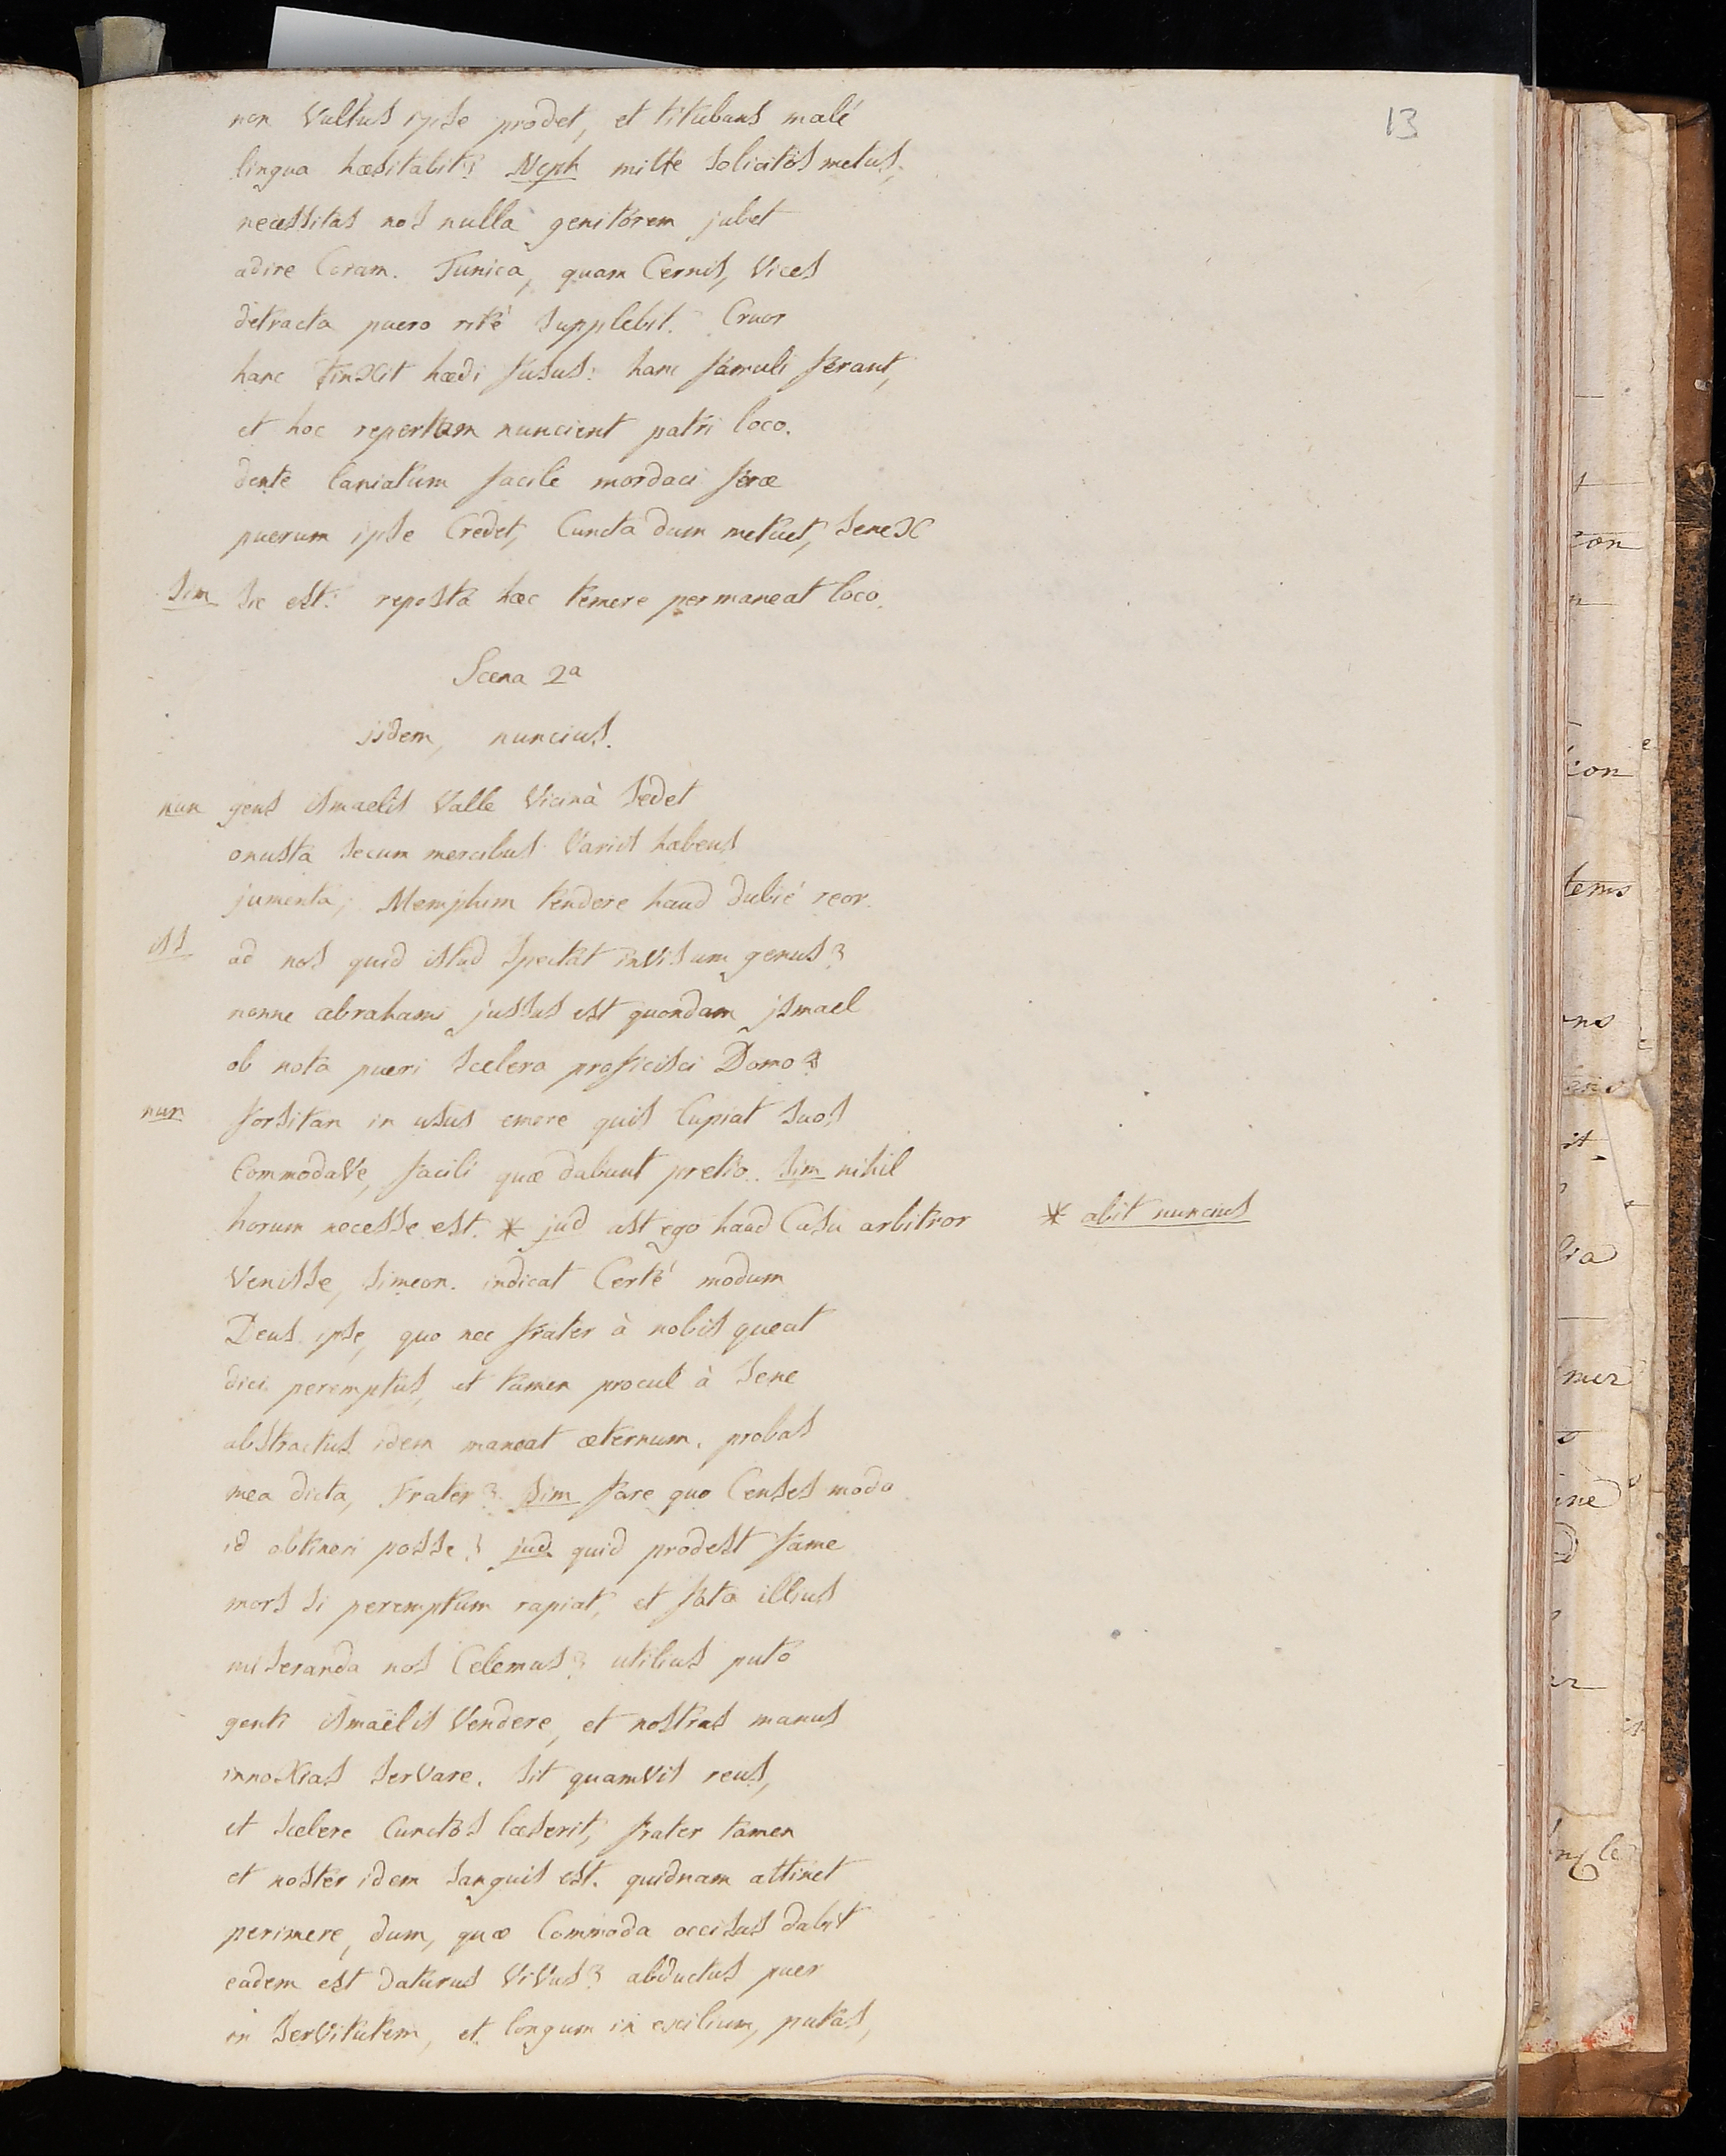 13
non Vultus ipse prodet, et titubans malé
lingua hæsitabit? Neph mitte solicitos metus,
necessitas nos nulla genitorem jubet
adire Coram. Tunica, quam Cernis, Vices
detracta puero rité supplebit. Cruor
hanc tinxit hædi fusus: hanc famuli ferant,
et hoc repertam nuncient patri loco.
dente laniatum facilé mordaci feræ
puerum ipse Credet, Cuncta dum metuet, senex
Sim sic est: reposta hæc temere permaneat loco.
Scena 2a
iidem, nuncius.
nun gens ismaelis Valle Vicinà sedet
onusta secum mercibus Variis habens
jumenta; Memphim tendere haud dubié reor.
iss ad nos quid istud spectat invisum genus?
nonne abrahami jussus est quondam jsmael
ob nota pueri scelera proficisci Domo?
nun forsitan in usus emere quis Cupiat suos
CommodaVe, facili quæ dabunt pretio. Sim nihil
horum necesse est. * jud ast ego haud Casu arbitror * abit nuncius
Venisse, simeon. indicat Certé modum
Deus ipse, quo nec frater à nobis queat
dici peremptus, et tamen procul à sene
abstractus idem maneat æternum. probas
mea dicta, frater? Sim fare quo Censes modo
id obtineri posse? jud quid prodest fame
mors si peremptum rapiat, et fata illius
miseranda nos Celemus? utilius puto
genti ismaëlis Vendere, et nostras manus
innoxias serVare. sit quamvis reus,
et scelere Cunctos læserit, frater tamen
et noster idem sanguis est. quidnam attinet
perimere, dum, quæ Commoda occisus dabit
eadem est daturus ViVus? abductus puer
in serVitutem, et longum in exilium, putas,